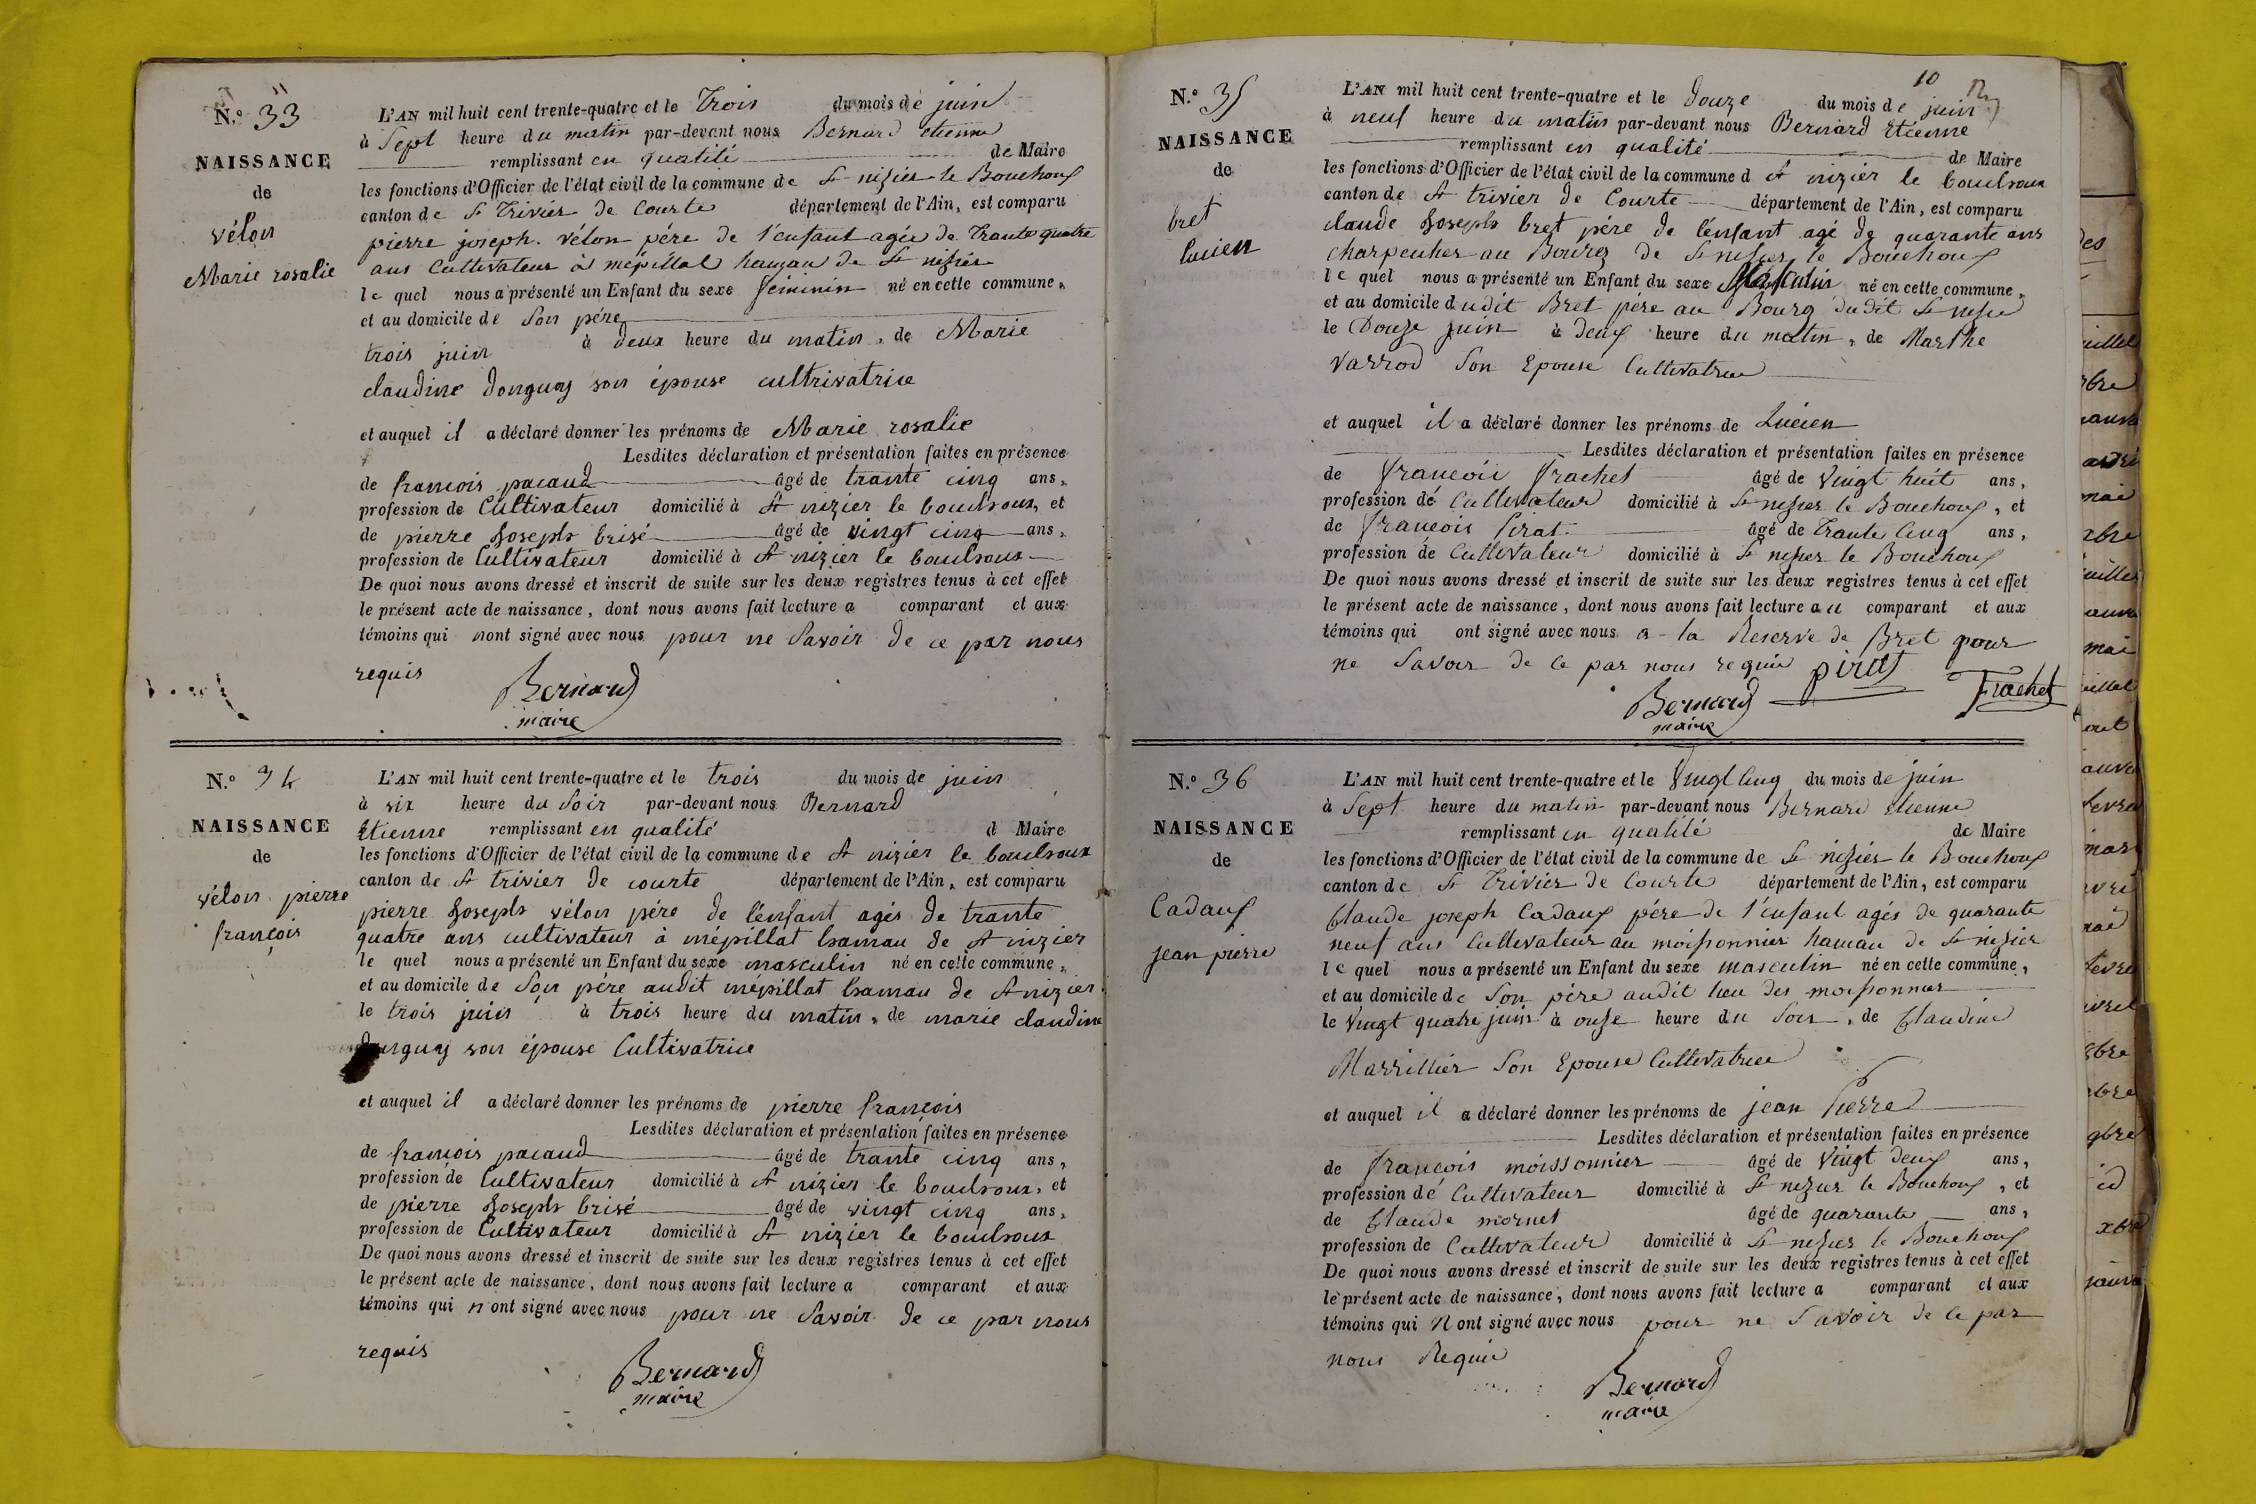 N.º 33
NAISSANCE
de
vélon
Marie rosalie
L'AN mil huit cent trente-quatre et le Trois du mois de juin
à Sept heure du matin par-devant nous Bernard etienne
remplissant en qualité de Maire
les fonctions d'Officier de l'état civil de la commune de St nizier le Bouchoux
canton de St Trivier de Courte département de l'Ain, est comparu
pierre joseph. vélon pére de l'enfant agée de Trante quatre
ans Cultivateur à mépillat hameau de St nizier
le quel nous a présenté un Enfant du sexe féminin né en cette commune,
et au domicile de Son pére
trois juin à deux heure du matin, de Marie
claudine donguy son épouse cultrivatrice
et auquel il a déclaré donner les prénoms de Marie rosalie
Lesdites déclaration et présentation faites en présence
de françois pacaud âgé de trante cinq ans,
profession de Cultivateur domicilié à St nizier le bouchoux, et
de pierre Joseph brisé âgé de vingt cinq ans,
profession de Cultivateur domicilié à St nizier le bouchoux
De quoi nous avons dressé et inscrit de suite sur les deux registres tenus à cet effet
le présent acte de naissance, dont nous avons fait lecture a comparant et aux
témoins qui nont signé avec nous pour ne Savoir de ce par nous
requis
Bernard
maire
N.º 34
NAISSANCE
de
vélon pierre
françois
L'AN mil huit cent trente-quatre et le trois du mois de juin
à six heure du Soir par-devant nous Bernard
Etienne remplissant en qualité d Maire
les fonctions d'Officier de l'état civil de la commune de St nizier le bouchoux
canton de St trivier de courte département de l'Ain, est comparu
pierre Joseph vélon pére de l'énfant agés de trante
quatre ans cultivateur à mépillat hamau de St nizier
le quel nous a présenté un Enfant du sexe masculin né en cette commune,
et au domicile de Son pére audit mépillat hamau de St nizier
le trois juin à trois heure du matin, de marie claudine
donguy son épouse Cultivatrice
et auquel il a déclaré donner les prénoms de pierre françois
Lesdites déclaration et présentation faites en présence
de françois pacaud âgé de trante cinq ans,
profession de Cultivateur domicilié à St nizier le bouchoux, et
de pierre Joseph brisé âgé de vingt cinq ans,
profession de Cultivateur domicilié à St nizier le bouchoux
De quoi nous avons dressé et inscrit de suite sur les deux registres tenus à cet effet
le présent acte de naissance, dont nous avons fait lecture a comparant et aux
témoins qui n ont signé avec nous pour ne Savoir de ce par nous
requis
Bernard
maire
10
N.º 35
NAISSANCE
de
bret
Lucien
L'AN mil huit cent trente-quatre et le Douze du mois de juin
à neuf heure du matin par-devant nous Bernard Etienne
remplissant en qualité de Maire
les fonctions d'Officier de l'état civil de la commune d St nizier le bouchoux
canton de St trivier de Courte département de l'Ain, est comparu
claude Joseph bret pére de l'énfant agé de quarante ans
charpentier au Bourg de St nizier le Bouchoux
le quel nous a présenté un Enfant du sexe Masculin né en cette commune,
et au domicile dudit Bret pére au Bourg dudit St nizier
le Douze juin à deux heure du matin, de Marthe
varrod Son Epouse Cultivatrice
et auquel il a déclaré donner les prénoms de Lucien
Lesdites déclaration et présentation faites en présence
de françois frachet âgé de vingt huit ans,
profession de Cultivateur domicilié à St nizier le Bouchoux, et
de françois pirat âgé de Trante Cinq ans,
profession de Cultivateur domicilié à St nizier le Bouchoux
De quoi nous avons dressé et inscrit de suite sur les deux registres tenus à cet effet
le présent acte de naissance, dont nous avons fait lecture au comparant et aux
témoins qui ont signé avec nous a la Reserve de Bret pour
ne Savoir de ce par nous requis pirat
Frachet
Bernard
maire
N.º 36
NAISSANCE
de
Cadaux
jean pierre
L'AN mil huit cent trente-quatre et le Vingt Cinq du mois de juin
à Sept heure du matin par-devant nous Bernard Etienne
remplissant en qualité de Maire
les fonctions d'Officier de l'état civil de la commune de St nizier le Bouchoux
canton de St Trivier de Courte département de l'Ain, est comparu
Claude joseph Cadaux pére de l'enfant agés de quarante
neuf ans Cultivateur au moissonnier hamau de St nizier
le quel nous a présenté un Enfant du sexe masculin né en cette commune,
et au domicile de Son pére audit lieu des moissonnier
le vingt quatre juin à onze heure du Soir, de Claudine
Marrillier Son Epouse Cultivatrice
et auquel il a déclaré donner les prénoms de jean Pierre
Lesdites déclaration et présentation faites en présence
de françois moissonnier âgé de vingt deux ans,
profession de Cultivateur domicilié à St nizier le Bouchoux, et
de Claude mornet âgé de quarante ans,
profession de Cultivateur domicilié à St nizier le Bouchoux
De quoi nous avons dressé et inscrit de suite sur les deux registres tenus à cet effet
le présent acte de naissance, dont nous avons fait lecture a comparant et aux
témoins qui N ont signé avec nous pour ne Savoir de ce par
nous Requis
Bernard
maire